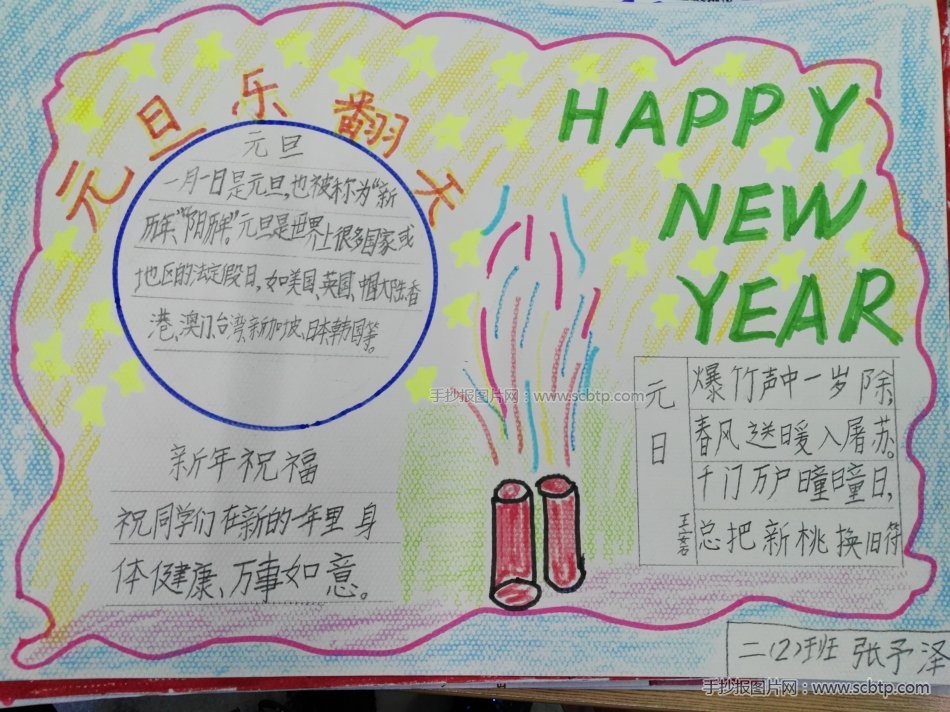 元旦乐翻天
元旦
一月一日是元旦,也被称为“新
历年”“阳历年”。元旦是世界上很多国家或
地区的法定假日,如美国、英国、中国大陆、香
港、澳门、台湾、新加坡、日本、韩国等。
新年祝福
祝同学们在新的一年里身
体健康、万事如意。
HAPPY
NEW
YEAR
元日
王安石
爆竹声中一岁除,
春风送暖入屠苏。
千门万户曈曈日,
总把新桃换旧符
二(2)班 张予泽
手抄报图片网:www.scbtp.com
手抄报图片网:www.scbtp.com